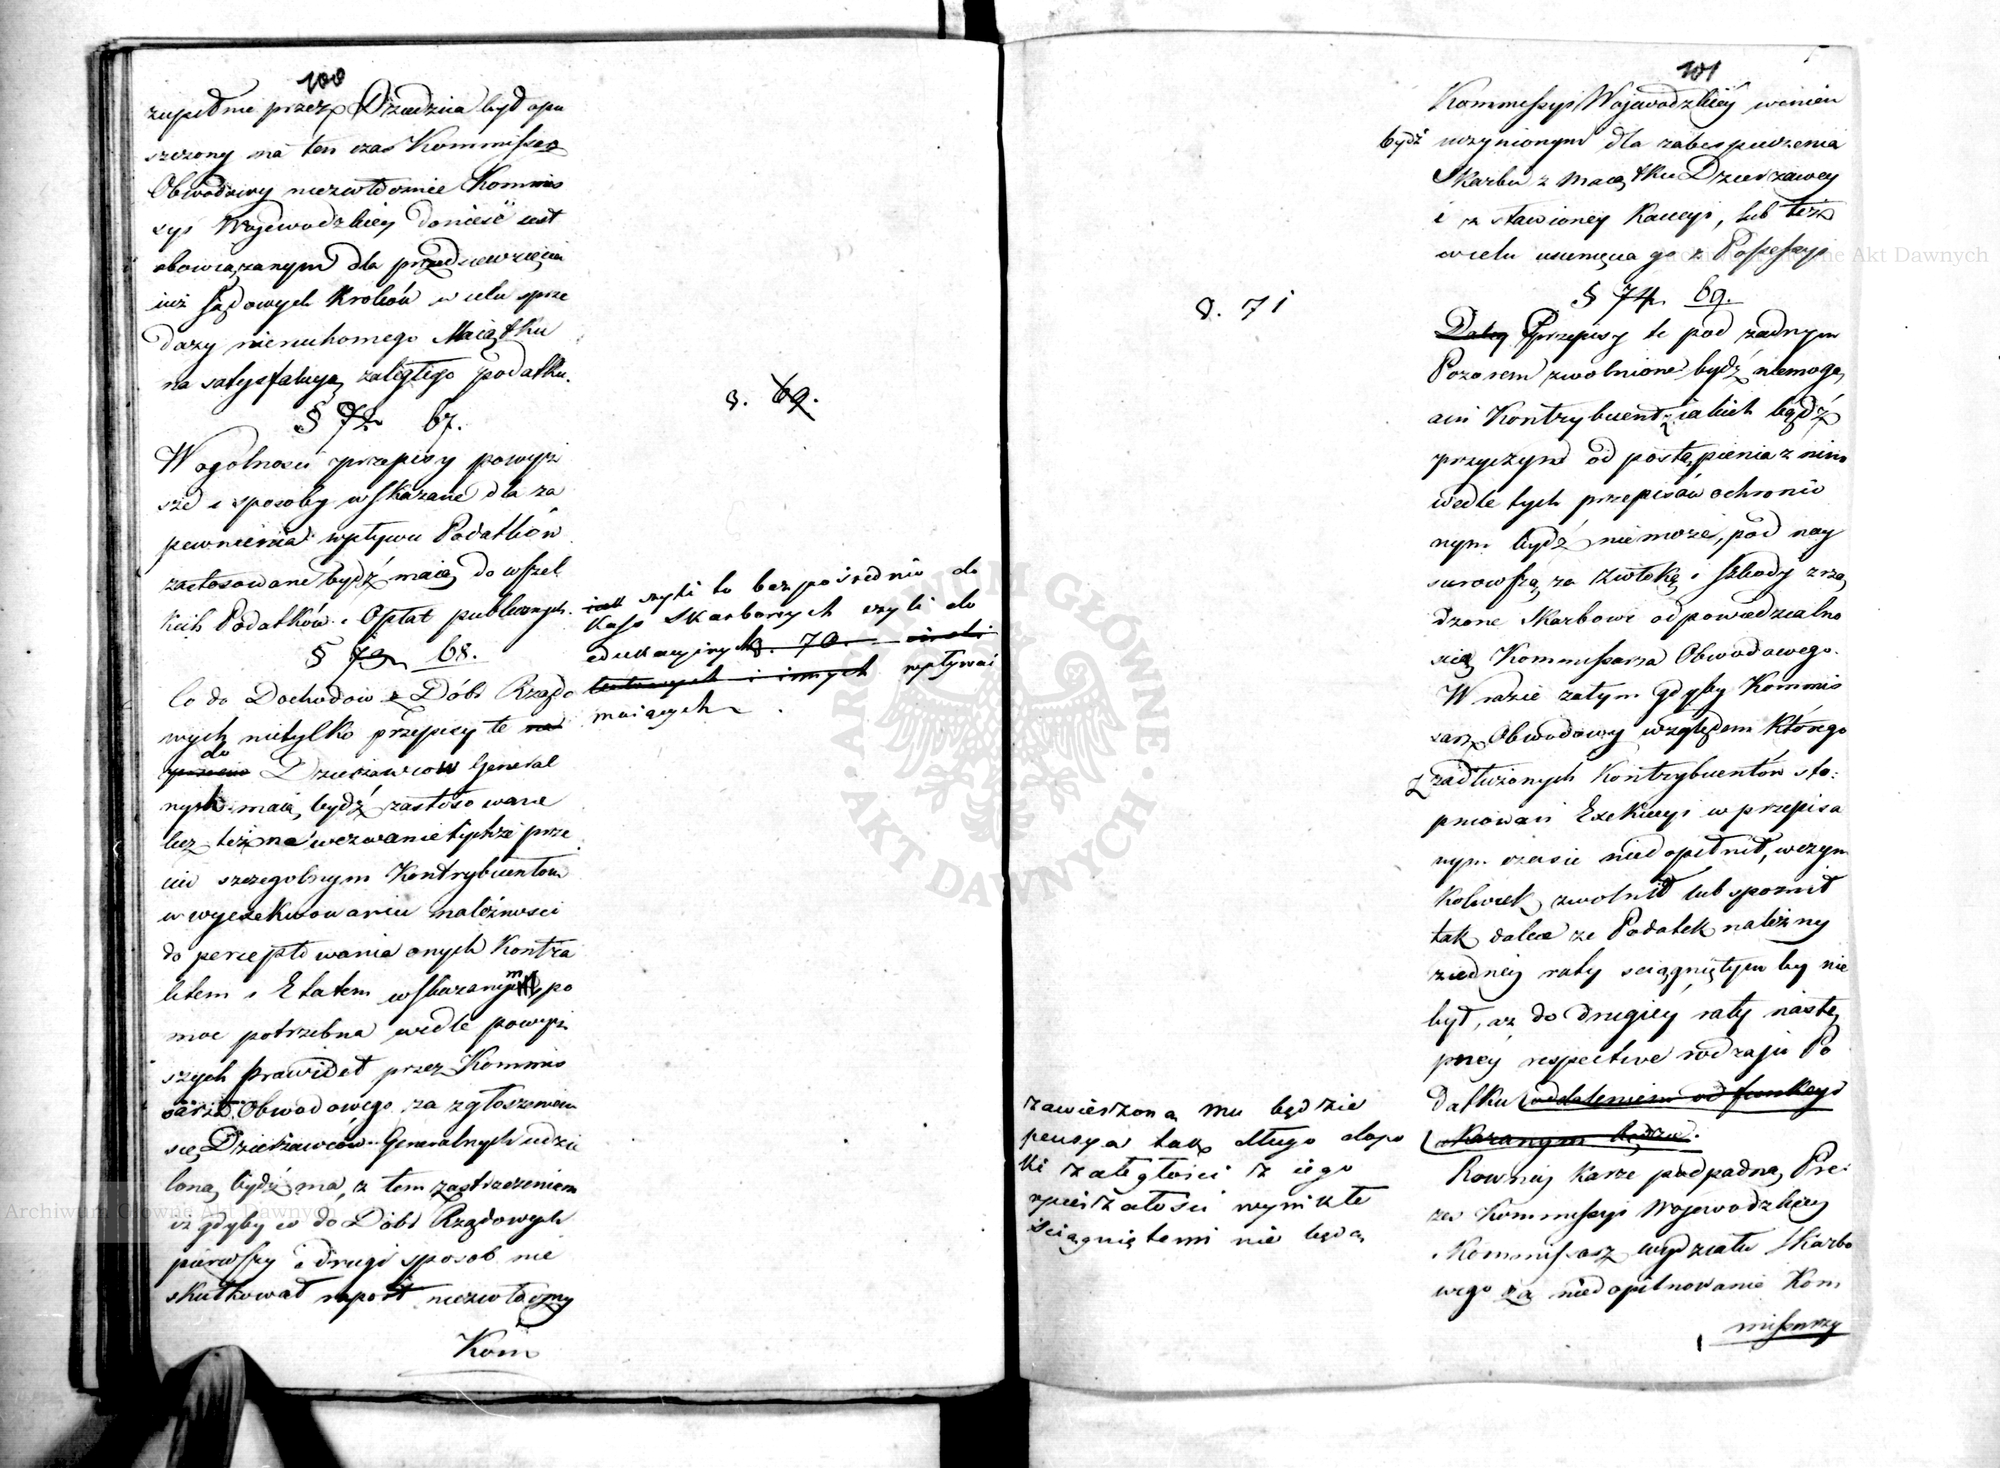 100
zupełnie przez Dziedzica był opu
szczony na ten czas Kommissarz
Obwodowy niezwłocznie Kommis
syi Wojewodzkiey donieść iest
obowiązanym dla przedsięwzięcia
iuż sądowych Kroków w celu sprze
dazy nieruchomego Maiątku
na satysfakcyą zaległego podatku.
§ 72 67.
W ogólnosci przepisy powyż
sze i sposoby wskazane dla za
pewnienia wpływu Podatków
zastosowane bydź maią do wszel
kich Podatków i Opłat publicznych.
§ 73 68.
Co do Dochodów z Dóbr Rządo
wych nietylko przepisy te na
do
Dzierżawców General
nych maią bydź zastosowane
lecz też na wezwanie tychże prze
ciw szczegolnym Kontrybuentom
w wyexekwowaniu należnosci
do perceptowania onych Kontra
ktem i Etatem wskazanym po
moc potrzebna wedle powyż
szych prawideł przez Kommis
sarza Obwodowego za zgłoszeniem
się Dzierżawców Generalnych udzie
loną bydź ma, z tem zastrzeżeniem
iż gdyby co do Dóbr Rządowych
pierwszy i drugi sposob nie
skutkował raport niezwłoczny
Kom
§. 69.
iak czyli to bezpośrednio do
Kass Skarbowych czyli do
edukacyinych §. 70.
i innych wpływać
maiących
101
Kommissyi Wojewodzkiey winien
bydź uczynionym dla zabespieczenia
Skarbu z Maiątku Dzierzawcy
i z stawioney Kaucyi, lub też
w celu usunięcia go z Possessyi
§ 74. 69.
Daley Przepisy te pod zadnym
Pozorem zwolnione bydź niemogą
ani Kontrybuent z iakich bądź
przyczyn od postąpienia z nim
wedle tych przepisów ochronio
nym bydź niemoże, pod nay
surowszą za zwłokę i szkody zrzą
dzone Skarbowi odpowiedzialno
scią Kommissarza Obwodowego.
W razie zatym gdyby Kommis
sarz Obwodowy względem którego
z zadłużonych Kontrybuentów sto:
pniowań Exekucyi w przepisa
nym czasie niedopełnił, w czym
kolwiek zwolnił lub spoznił
tak dalece ze Podatek należny
z iedney raty sciągniętym by nie
był, aż do drugiey raty nastę
pney respective rodzaju Po
datku oddaleniem od funkcyi
karanym będzie.
Rowney karze podpadną Pre:
zes Kommissyi Wojewodzkiey
Kommissarz wydziału Skarbo
wego za niedopilnowanie Kom
missarzy
§. 71
zawieszoną mu będzie
pensya tak długo dopo
ki zaległości z iego
opieszałości wynikłe
ściągniętemi nie będą